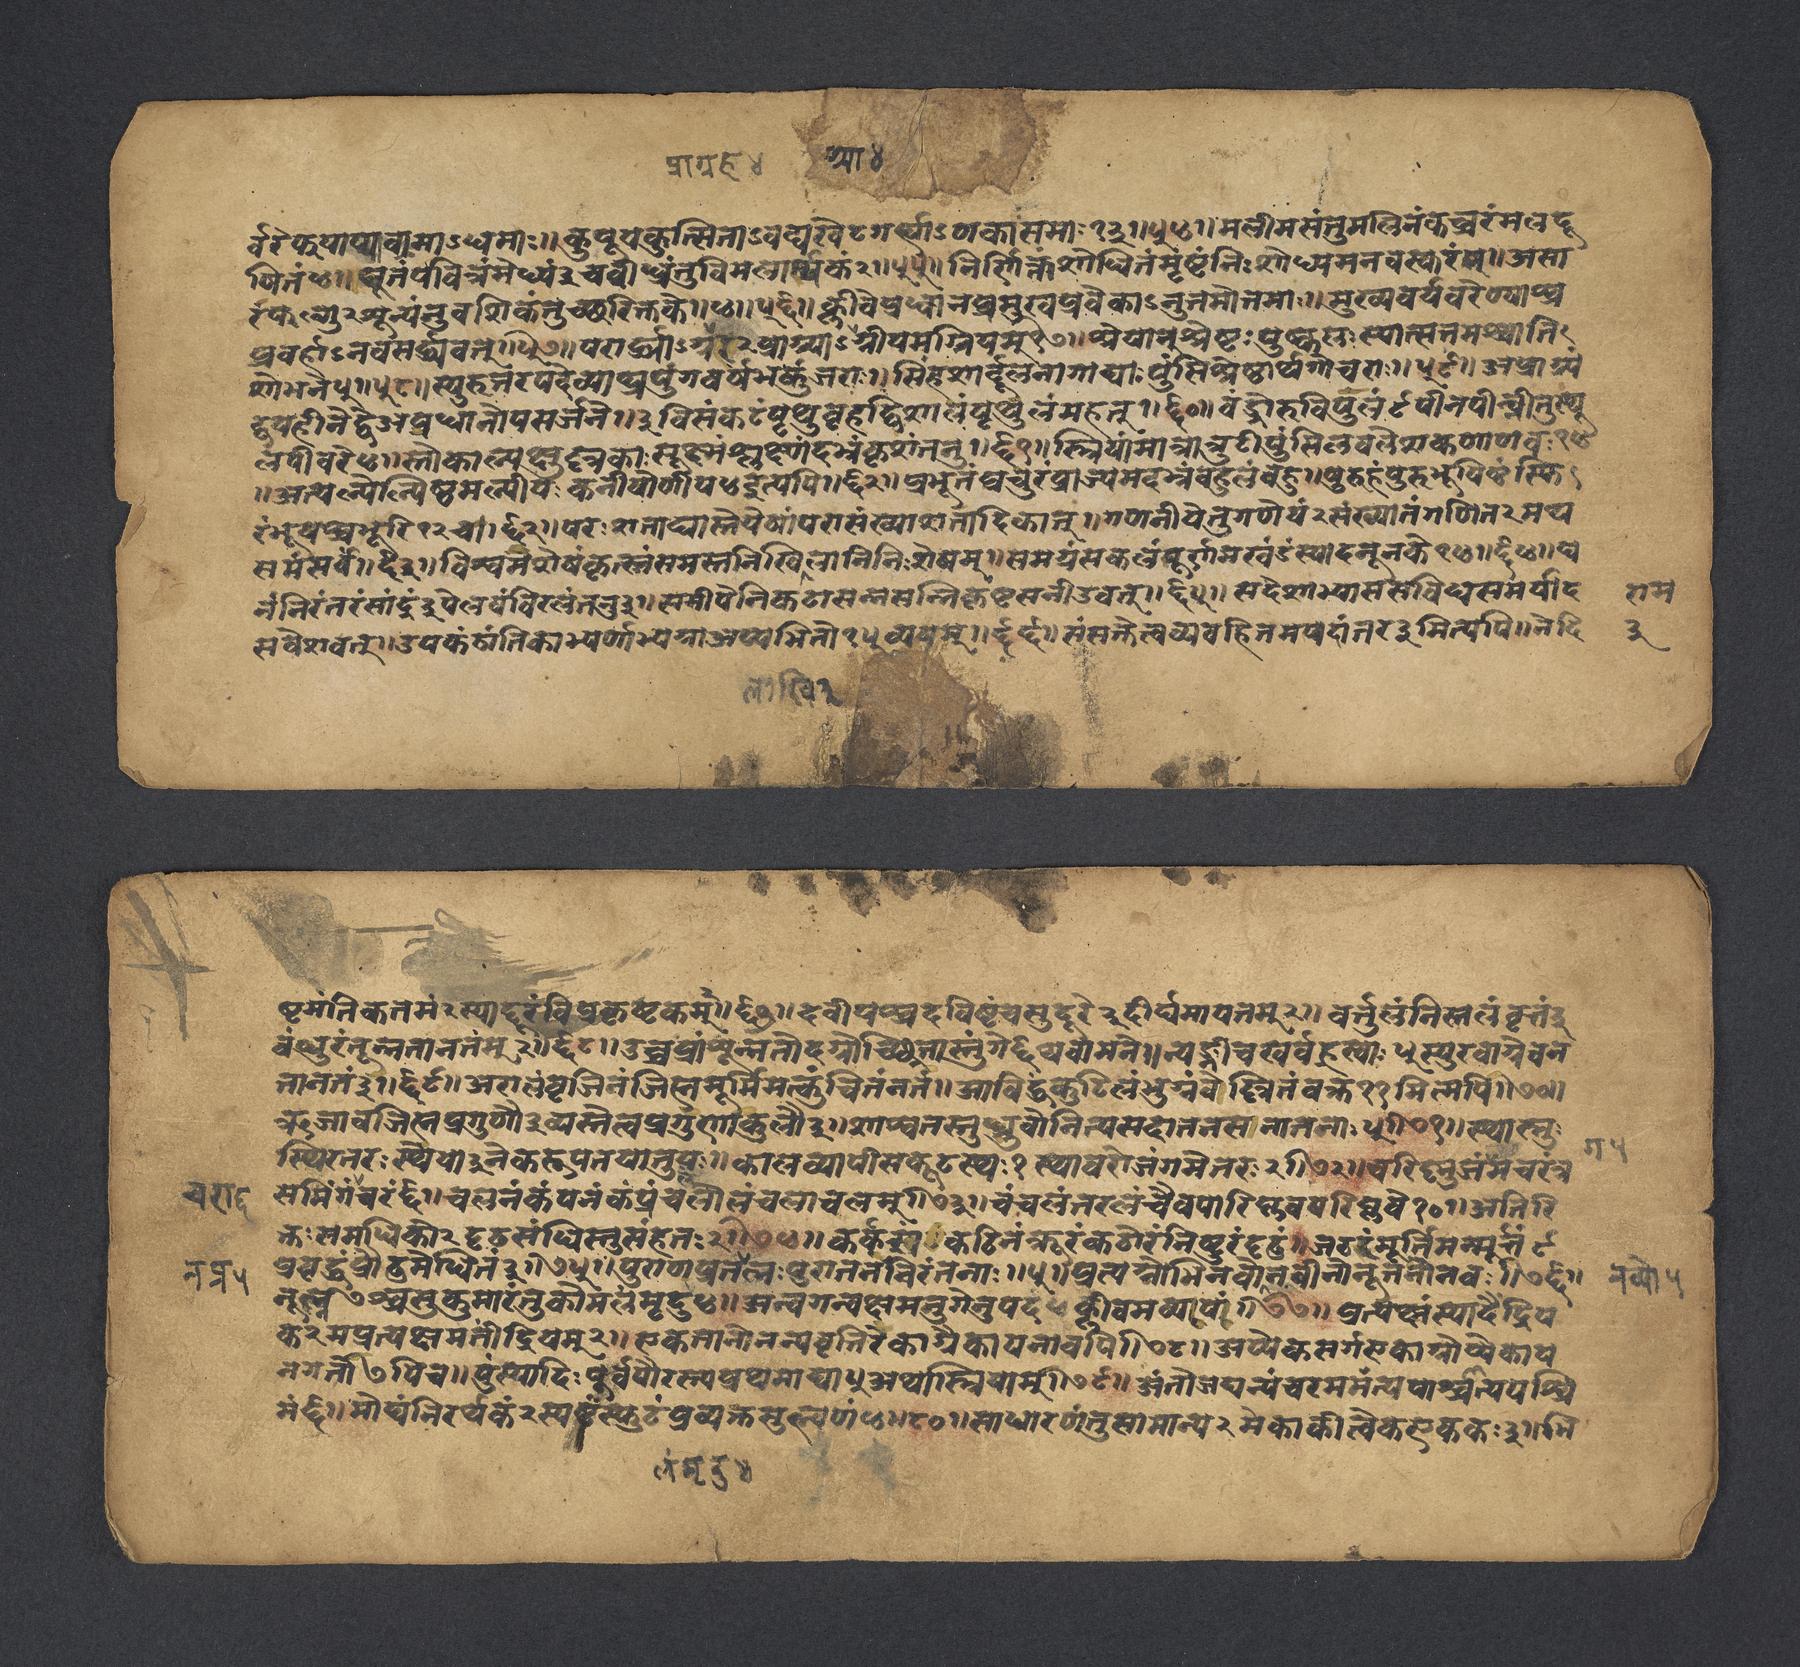 प्राग्रह ४ आ ४
र्वरेफयाप्यावमाऽधमाः॥ कुपूयकुत्सिताऽवद्यखेटगर्ह्याऽणकासमाः १३॥५४॥ मलीमसंतुमलिनंकच्चरंमलदू
षितं४॥ पूतंपवित्रंमेध्यं३चवीध्रंतुविमलार्थकं२॥५५॥ निर्णिक्तंशोधितंमृष्टंनिःशोध्यमनवस्करं५॥ असा
रंफल्गु२शून्यंतुवशिकंतुच्छरिक्तके॥४॥५६॥ क्लीबेप्रधानप्रमुखप्रवेकाऽनुत्तमोत्तमाः॥ मुख्यवर्यवरेण्याश्च
प्रवर्हाऽनवरार्ध्यवत्॥५७॥ परार्ध्याऽग्रहर२प्राग्र्याऽग्रीयमग्रियम्१७॥ श्रेयान्श्रेष्टः पुष्कलः स्यात्सत्तमश्चाति
शोभने५॥५८॥ स्युरुत्तरपदेव्याघ्रपुंगवर्षभकुंजराः॥ सिंहशार्दूलनागाद्याः पुंसिश्रेष्ठार्थगोचराः॥५९॥ अप्राग्र्यं
द्वयहीनेद्वेअप्रधानोपसर्जने॥३ विसंकटंपृथुबृहद्विशालंपृथुलंमहत्॥६०॥ वंड्रोरुविपुलं९पीनपीव्नीतुस्थू
लपीवरे४॥ स्तोकाल्पक्षुल्लकाः सूक्ष्मंश्लक्ष्णंदभ्रंकृशंतनु॥६१॥ स्त्रियांमात्रात्रुटीपुंसिलवलेशकणाणवः१४
॥अत्यल्पेल्पिष्ठमल्पीयः कनीयोणीय५इत्यपि॥६२॥ प्रभूतंप्रचुरंप्राज्यमदभ्रंबहुलंबहु॥ पुरुहंपुरुभूयिष्ठंस्फि
रंभूयश्चभूरि१२चा॥६३॥ परः शताद्यास्तेयेषांपरासंख्याशतादिकात्॥ गणनीयेतुगणेयं२संख्यातंगणित२मथ
समंसर्वं॥६४॥ विश्वमशेषंकृत्स्नंसमस्तनिखिलानिनिःशेषम्॥ समग्रंसकलंपूर्णमखंडंस्यादनूनके१४॥६४॥ घ
नंनिरंतरंसांद्रं३पेलवंविरलंतनु३॥ समीपेनिकटासन्नसन्निकृष्टसनीडवत्॥६५॥ सदेशाभ्याससविधसमर्याद
शम
सवेशवत्॥ उपकंठांतिकाभ्यर्णाभ्यग्राअप्यभितो१५व्ययम्॥६६॥ संसक्तेत्वव्यवहितमपदांतर३मित्यपि॥ नेदि
३
लाखि३
ष्टमंतिकतमं२स्याद्दूरंविप्रकृष्टकम्॥६७॥ दवीयश्चदविष्टंचसुदूरे३दीर्घमायतम्२॥ वर्त्तुलंनिस्तलंवृत्तं३
बंधुरंतून्नतानतम्२॥६८॥ उच्चप्रांशून्नतोदग्रोच्छ्रितास्तुंगे६थवामने॥ न्यङ्नीचखर्वह्रस्वाः ५स्युरवाग्रेवन
तानतं३॥६९॥ अरालंवृजिनंजिह्ममूर्मिमत्कुंचितंनतं॥ आविद्धकुटिलंभुग्नंवेल्लितंवक्र११मित्यपि॥७०॥
ऋजावजिह्मप्रगुणौ३व्यस्तेत्वप्रगुणाकुलौ३॥ शाश्वतस्तुध्रुवोनित्यसदातनसनातनाः५॥७१॥ स्थास्नुः
ग५
स्थिरतरः स्थेया३नेकरूपतयातुयः॥ कालव्यापीसकूटस्थः१ स्थावरोजंगमेतरः२॥७२॥ चरिष्णुजंमचरंत्र
चराद
समिंगंचरं६॥ चलनंकंपनंकंप्रंचलंलोलंचलाचलम्॥७३॥ चंचलंतरलंचैवपारिप्लवपरिप्लवे१०॥ अतिरि
क्तः समधिको२दृढसंधिस्तुसंहतः२॥७४॥ कर्कशं कठिनंक्रूरंकठोरंनिष्ठुरंदृढं॥ जठरंमूर्त्तिमन्मूर्त्तं९
तप्र५
प्रवृद्धंप्रौढमेधितं३॥७५॥ पुराणप्रतनप्रत्नः पुरातनचिरंतनाः॥५॥ प्रत्यग्रोभिनवोनवीनोनूतनोनवः॥७६॥
नव्यो५
नूत्न७श्चसुकुमारंतुकोमलंमृदु४॥ अन्वगन्वक्षमनुगेनुपदं४क्लीबमव्ययं॥७७॥ प्रत्यक्षंस्यादैंद्रिय
क२मप्रत्यक्षमतींद्रियम्२॥ एकतानोनन्यवृत्तिरेकाग्रैकायनावपि॥७८॥ अप्येकसर्गएकाग्र्योप्येकाय
नगतो७पिच॥ पुंस्यादिः पूर्वपौरस्त्यप्रथमाद्या५अथास्त्रियाम्॥७९॥ अंतोजघन्यंचरममंत्यपाश्चात्यपश्चि
मं६॥ मोघंनिरर्थकं२स्पष्टंस्फुटंप्रव्यक्तमुल्बणं४॥८०॥ साधारणंतुसामान्य२मेकाकीत्वेकएककः३॥ भि
लंमृदु४